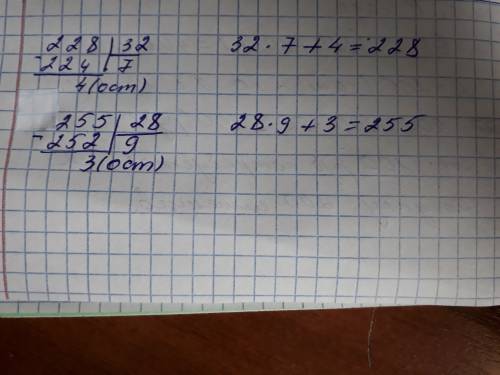 228 | 32 32 · 7 + 4 = 228
- 224 | 7
4 (ост)
255 | 28 28 · 9 + 3 = 255
- 252 | 9
3 (ост)